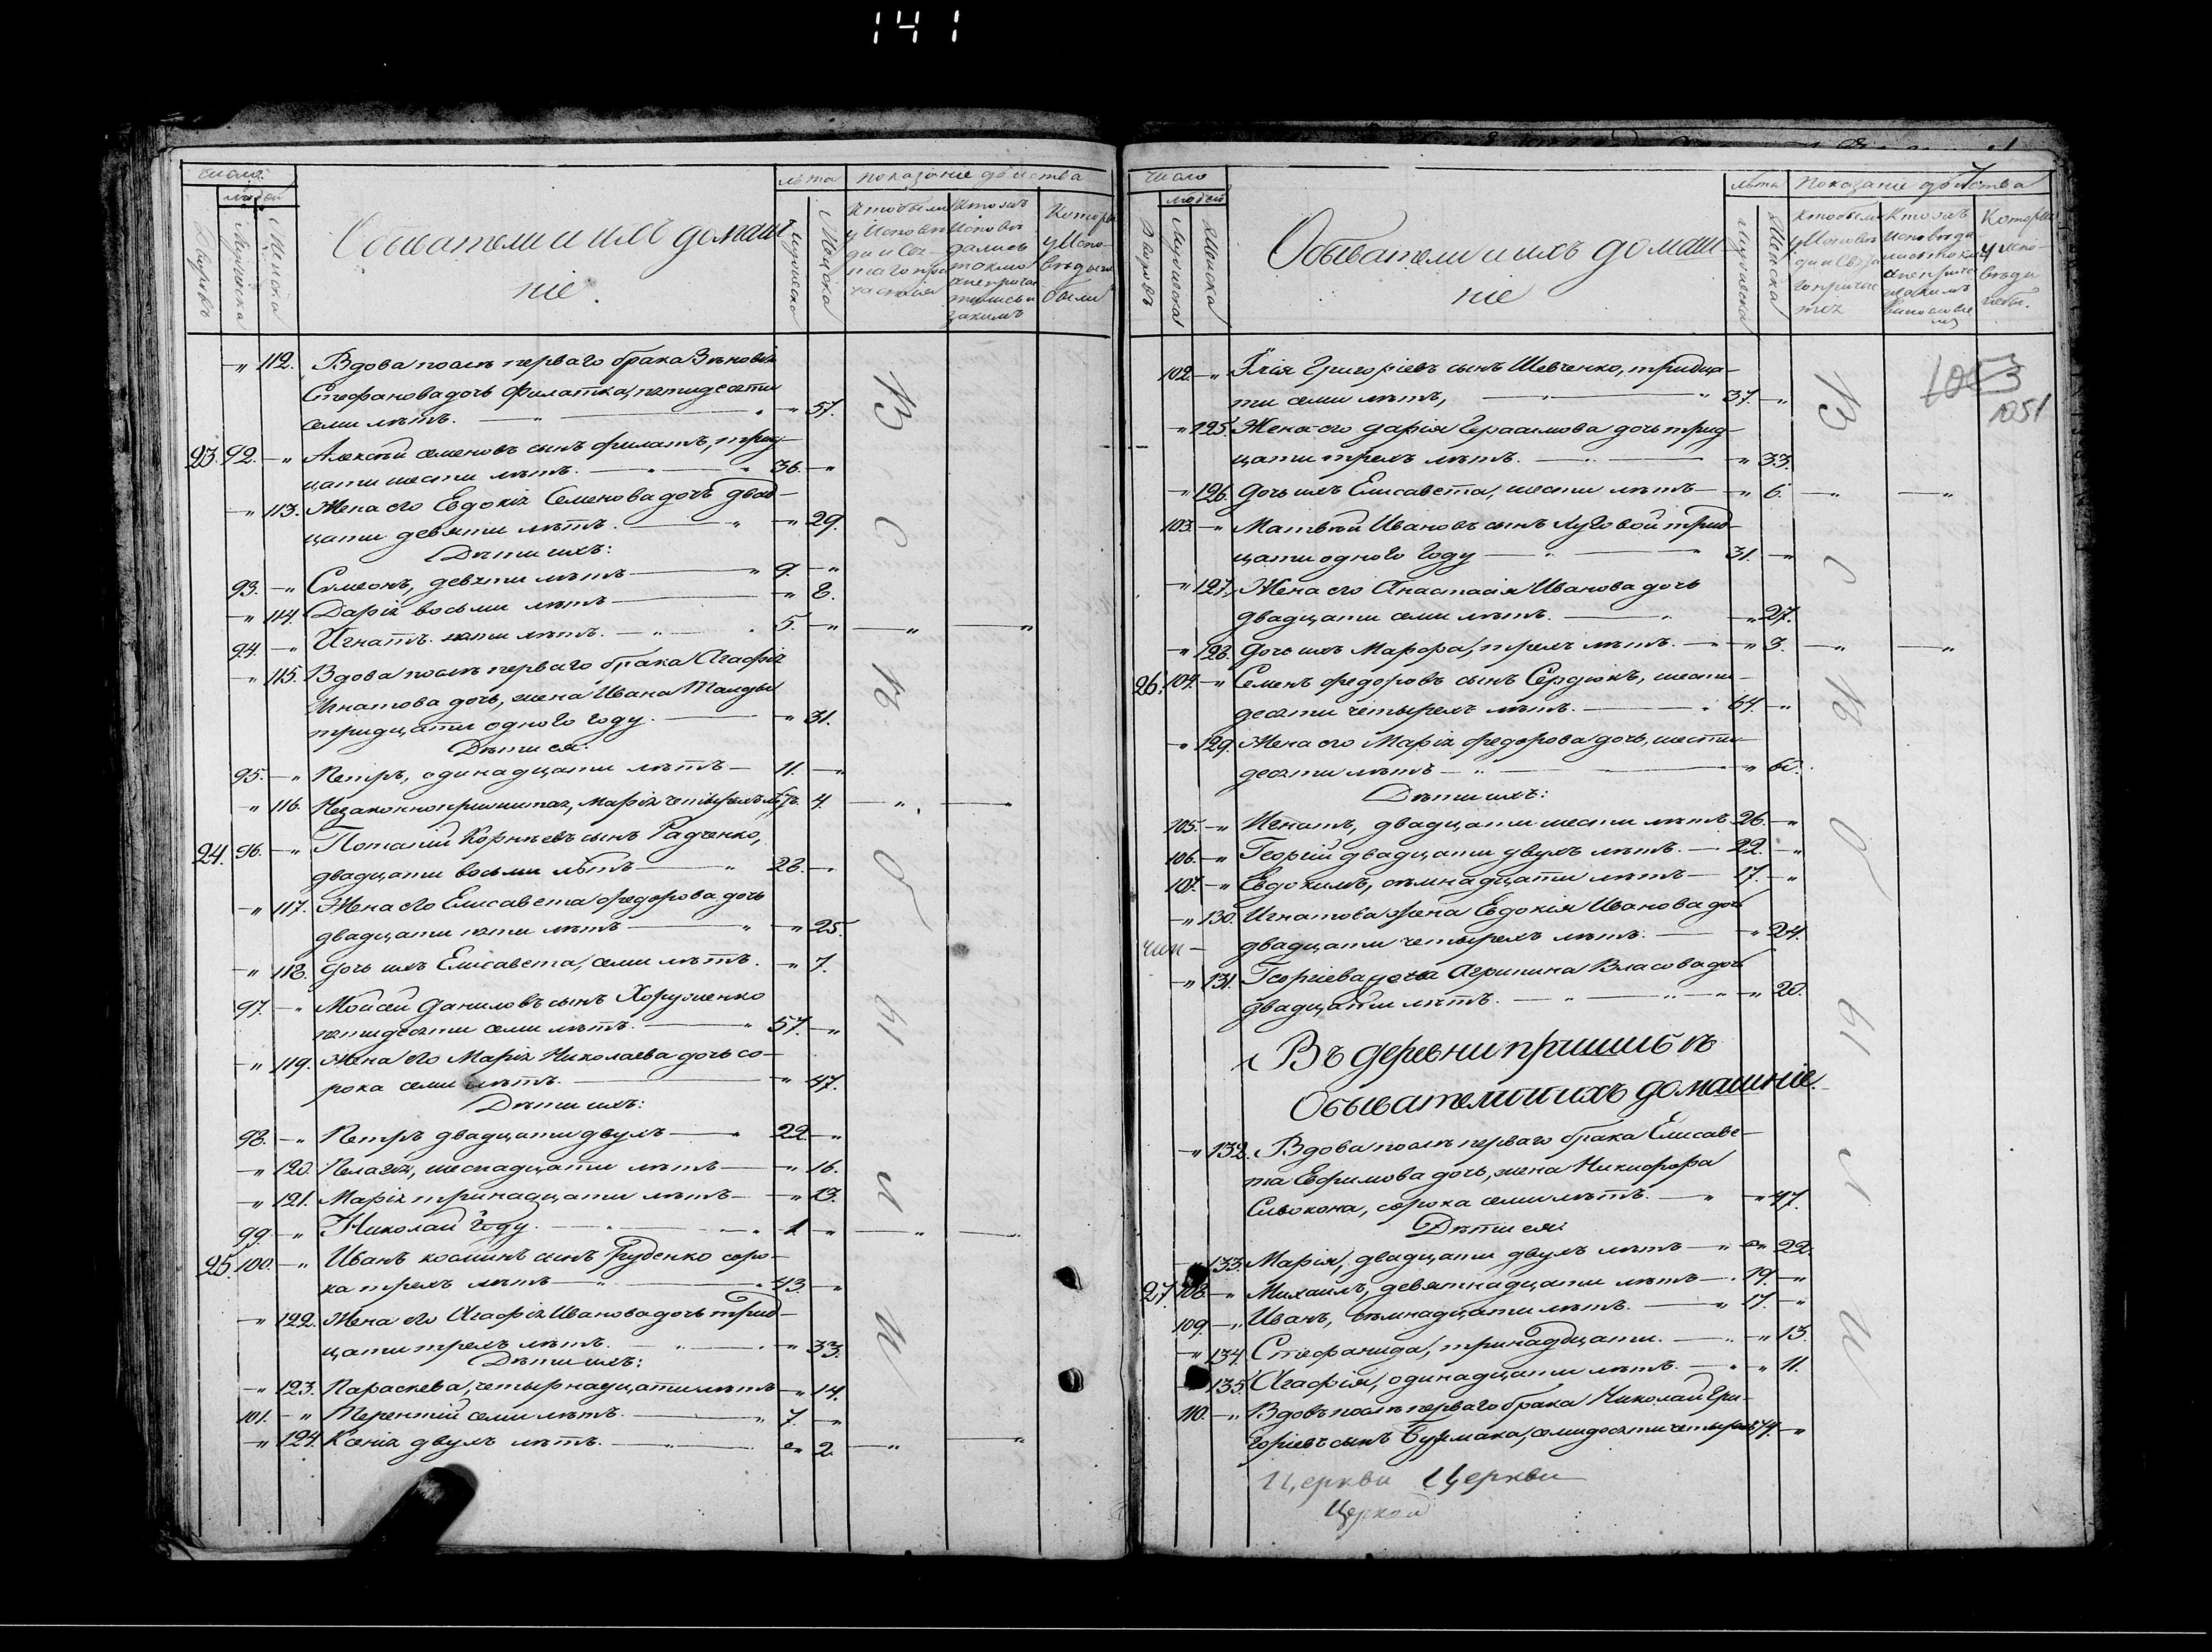 141
число
людей
Дворовъ
Мужеска
Женска
Обыватели и ихъ домаш
ніе.
лѣта
Мужеска
Женска
показаніе дѣйства
Кто были
у Исповѣ
ди и Св-
таго при
частія
Кто жъ
Исповѣ
дались
токмо
а не прича
стились и
зачимъ
Которы
у Испо-
вѣди не
были
" 112. Вдова послѣ перваго брака Зѣновія
Стефанова дочь Филатка, пятидесяти
семи лѣтъ. " 57.
23. 92. " Алексѣй Семеновъ сынъ Филатъ, трид-
цати шести лѣтъ. 36. "
" 113. Жена его Евдокія Семенова дочь двад-
цати девяти лѣтъ. " 29.
Дѣти ихъ:
93. " Симеонъ, девяти лѣтъ 9. "
" 114. Дарія восьми лѣтъ " 8.
94. " Игнатъ пяти лѣтъ. 5. " " "
" 115. Вдова послѣ перваго брака Агафія
Игнатова дочь, жена Ивана
тридцати одного году. " 31.
Дѣти ея:
95. " Петръ, одинадцати лѣтъ 11. "
" 116. Незаконноприжитая, Марія четырехъ лѣтъ. 4. " "
24. 96. " Потапій Корнѣевъ сынъ Радченко,
двадцати восьми лѣтъ 28. "
" 117. Жена его Елисавета Федорова дочь
двадцати пяти лѣтъ " 25.
" 118. Дочь ихъ Елисавета, семи лѣтъ. " 7.
97. " Мойсей Даниловъ сынъ Хоруженко
пятидесяти семи лѣтъ. 57. "
" 119. Жена его Марія Николаева дочь со-
рока семи лѣтъ. " 47.
Дѣти ихъ:
98. " Петръ двадцати двухъ 22. "
" 120. Пелагія, шеснадцати лѣтъ " 16.
" 121. Марія тринадцати лѣтъ " 13.
99. " Николай году. 1. " " "
25. 100. " Иванъ Косминъ сынъ Груденко соро-
ка трехъ лѣтъ 43. "
" 122. Жена его Агафія Иванова дочь трид-
цати трехъ лѣтъ. " 33.
Дѣти ихъ:
" 123. Параскева, четырнадцати лѣтъ " 14.
101. " Терентій семи лѣтъ. 7. "
" 124. Ксенія двухъ лѣтъ. " 2. " "
В
С
Ѣ
Б
Ы
Л
И
число
людей
Дворовъ
Мужеска
Женска
Обыватели и ихъ домаш
ніе
лѣта
Мужеска
Женска
Показаніе дѣйства
Кто были
у Исповѣ
ди и Свята
го причас
тія
Кто жъ
Исповѣда
лись токмо
а не прича
Которы
у испо-
вѣди
небы.
1053
1051
102. " Илія Григоріевъ сынъ Шевченко, тридца-
ти семи лѣтъ, 37. "
" 125. Жена его Дарія Герасимова дочь трид-
цати трехъ лѣтъ. " 33.
" 126. Дочь ихъ Елисавета, шести лѣтъ " 6. " "
103. " Матвѣй Ивановъ сынъ Луговой трид-
цати одного году 31. "
" 127. Жена его Анастасія Иванова дочь
двадцати семи лѣтъ. " 27.
" 128. Дочь ихъ Марфа, трехъ лѣтъ. " 3. " "
26. 104. " Семенъ Федоровъ сынъ Сердюкъ, шести-
десяти четырехъ лѣтъ. 64. "
" 129. Жена его Марія Федорова дочь, шести
десяти лѣтъ " 60.
Дѣти ихъ:
105. " Игнатъ, двадцати шести лѣтъ 26. "
106. " Георгій двадцати двухъ лѣтъ. 22. "
107. " Евдокимъ, семнадцати лѣтъ 17. "
" 130. Игнатова жена Евдокія Иванова дочь
двадцати четырехъ лѣтъ. " 24.
" 131. Георгіева жена Агрипина Власова дочь
двадцати лѣтъ. " 20.
Въ деревни пришибѣ
Обыватели и ихъ домашніе.
" 132. Вдова послѣ перваго брака Елисаве-
та Ефимова дочь, жена Никифора
Сивокона, сорока семи лѣтъ. " 47.
Дѣти ея:
" 133. Марія, двадцати двухъ лѣтъ " 22.
27. 108. " Михаилъ, девятнадцати лѣтъ 19. "
109. " Иванъ, семнадцати лѣтъ. 17. "
" 134. Стефанида, тринадцати. " 13.
" 135. Агафія, одинадцати лѣтъ. " 11.
110. " Вдовъ послѣ перваго брака Николай Гри-
горіевъ сынъ Бурмака, семидесяти четырехъ 74. "
В
С
Ѣ
Б
Ы
Л
И
Церкви Церкви
Церкви